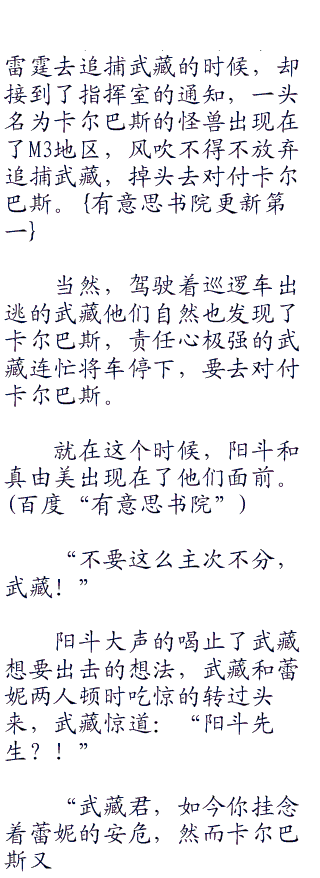 雷霆去追捕武藏的时候，却
接到了指挥室的通知，一头
名为卡尔巴斯的怪兽出现在
了M3地区，风吹不得不放弃
追捕武藏，掉头去对付卡尔
巴斯。{有意思书院更新第
一}
当然，驾驶着巡逻车出
逃的武藏他们自然也发现了
卡尔巴斯，责任心极强的武
藏连忙将车停下，要去对付
卡尔巴斯。
就在这个时候，阳斗和
真由美出现在了他们面前。
(百度“有意思书院”)
“不要这么主次不分，
武藏！”
阳斗大声的喝止了武藏
想要出击的想法，武藏和蕾
妮两人顿时吃惊的转过头
来，武藏惊道：“阳斗先
生？！”
“武藏君，如今你挂念
着蕾妮的安危，然而卡尔巴
斯又